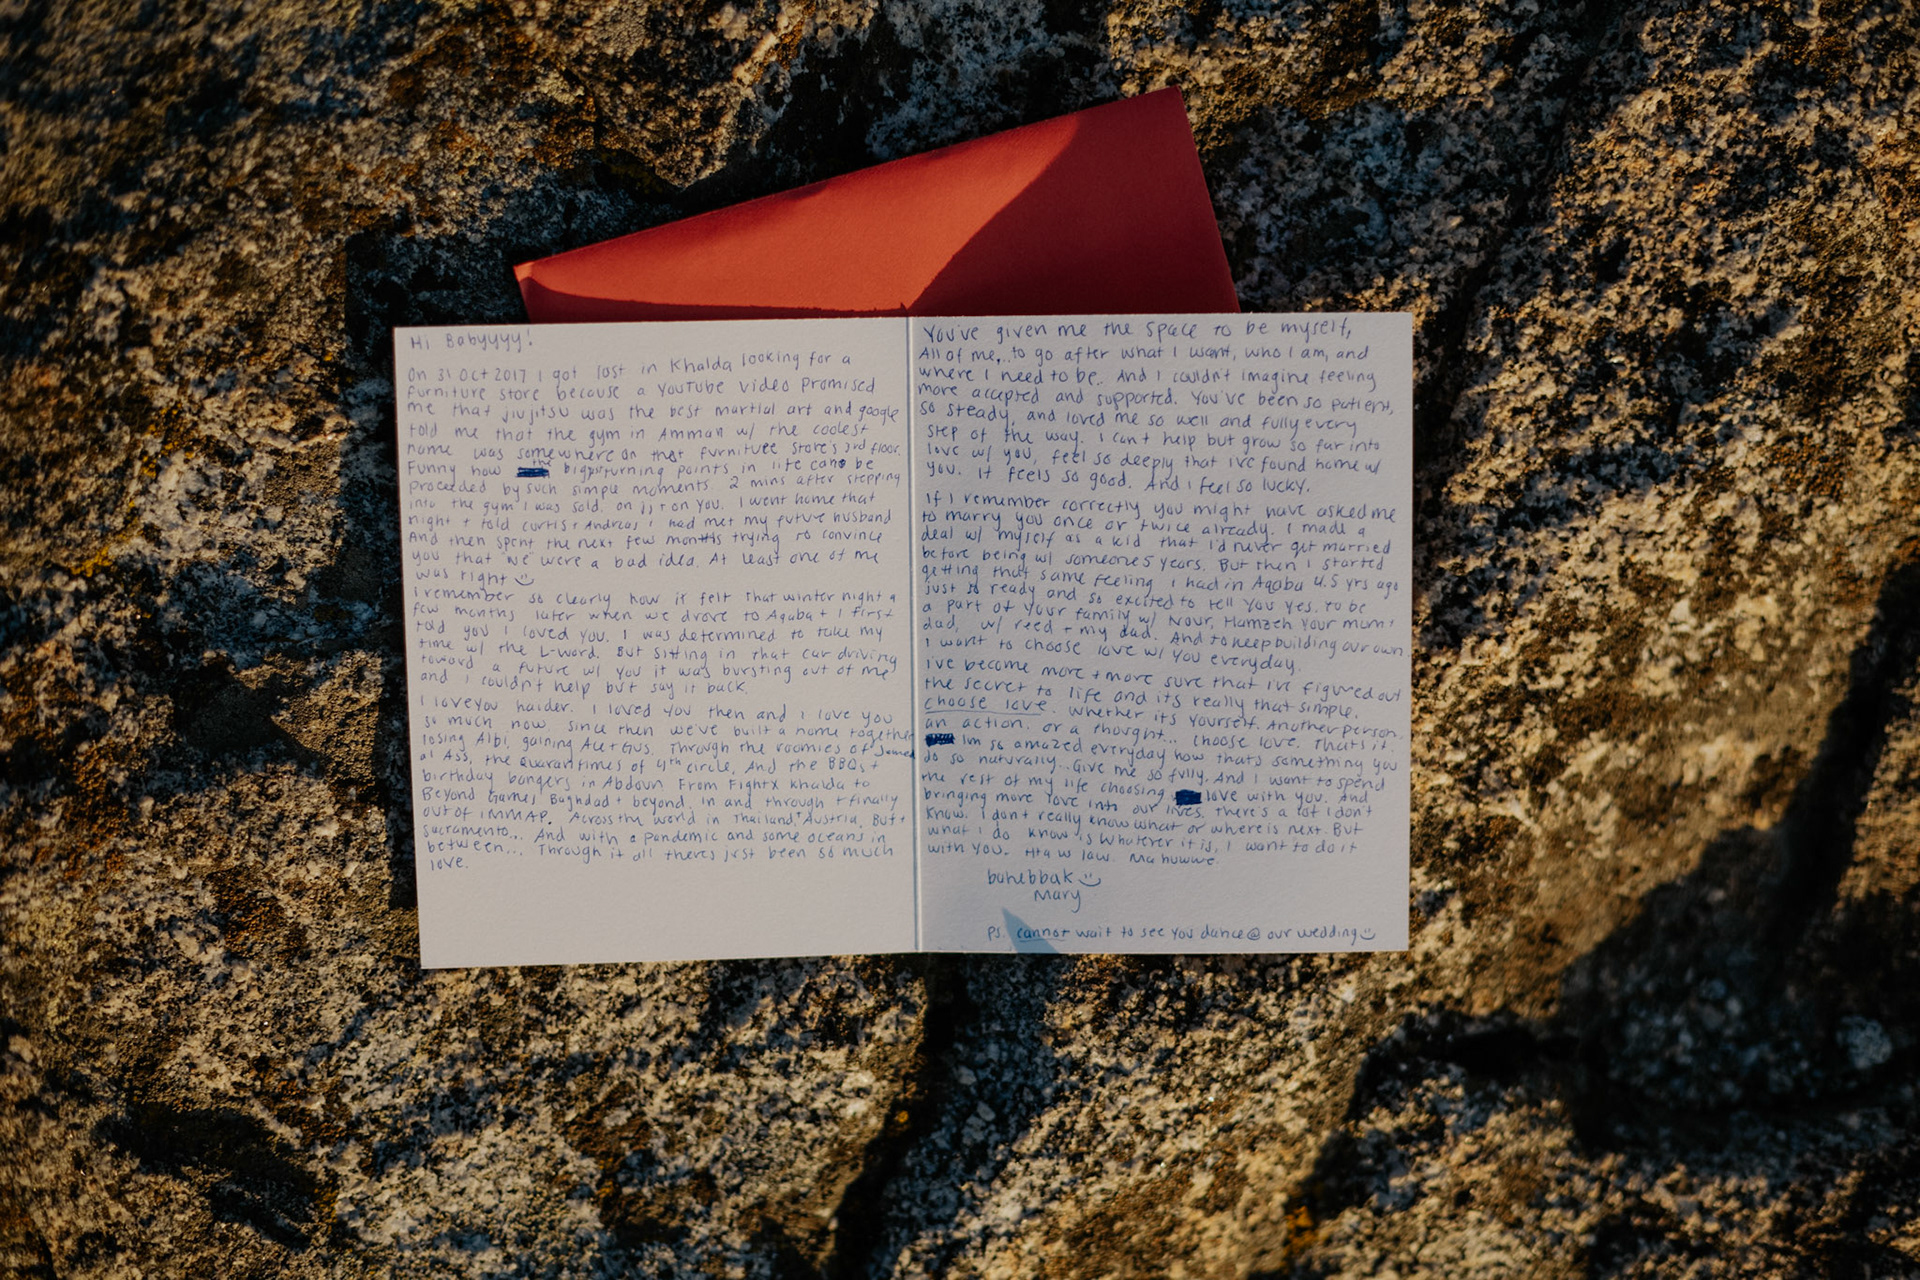 Hi Babyyyy!
On 31 Oct 2017 I got lost in Khalda looking for a
furniture store because a YouTube video promised
me that jiujitsu was the best martial art and google
told me that the gym in Amman w/ the coolest
name was somewhere on that furniture store's 3rd floor.
Funny how the big turning points in life can be
proceeded by such simple moments. 2 mins after stepping
into the gym I was sold. on jj + on you. I went home that
night + told Curtis + Andreas I had met my future husband
And then spent the next few months trying to convince
you that "we" were a bad idea. At least one of me
was right
I remember so clearly how it felt that winter night a
few months later when we drove to Aqaba + I first
told you I loved you. I was determined to take my
time w/ the L-word. But sitting in that car driving
toward a future w/ you it was bursting out of me
and I couldn't help but say it back.
I love you haider. I loved you then and I love you
so much now since then we've built a home together
losing Albi, gaining Ace + Gus. Through the roomies of
al Ass, the quarantimes of 4th circle, And the BBQs +
birthday bangers in Abdoun. From FightX Khalda to
Beyond Games, Baghdad + beyond. In and through + finally
out of IMMAP. Across the world in Thailand, Austria,
Sacramento... And with a pandemic and some oceans in
between... Through it all theres just been so much
love.
You've given me the space to be myself,
All of me... to go after what I want, who I am, and
where I need to be. And I couldn't imagine feeling
more accepted and supported. You've been so patient,
so steady, and loved me so well and fully every
step of the way. I can't help but grow so far into
love w/ you, feel so deeply that I've found home w/
you. It feels so good. And I feel so lucky.
If I remember correctly you might have asked me
to marry you once or twice already. I made a
deal w/ myself as a kid that I'd never get married
before being w/ someone 5 years. But then I started
getting that same feeling I had in Aqaba 4.5 yrs ago
just so ready and so excited to tell you yes. To be
a part of your family w/ Nour, Hamzeh your mum +
dad, w/ reed + my dad. And to keep building our own
I want to choose love w/ you everyday.
I've become more + more sure that I've figured out
the secret to life and its really that simple.
choose love. Whether its yourself. Another person.
an action. or a thought... choose love. Thats it.
Im so amazed everyday how thats something you
do so naturally. Give me so fully. And I want to spend
the rest of my life choosing love with you. And
bringing more love into our lives. There's a lot I don't
know. I don't really know what or where is next. But
what I do know is whatever it is, I want to do it
with you. Hta w law. Mahuwwe.
bahebbak
Mary
PS. cannot wait to see you dance @ our wedding